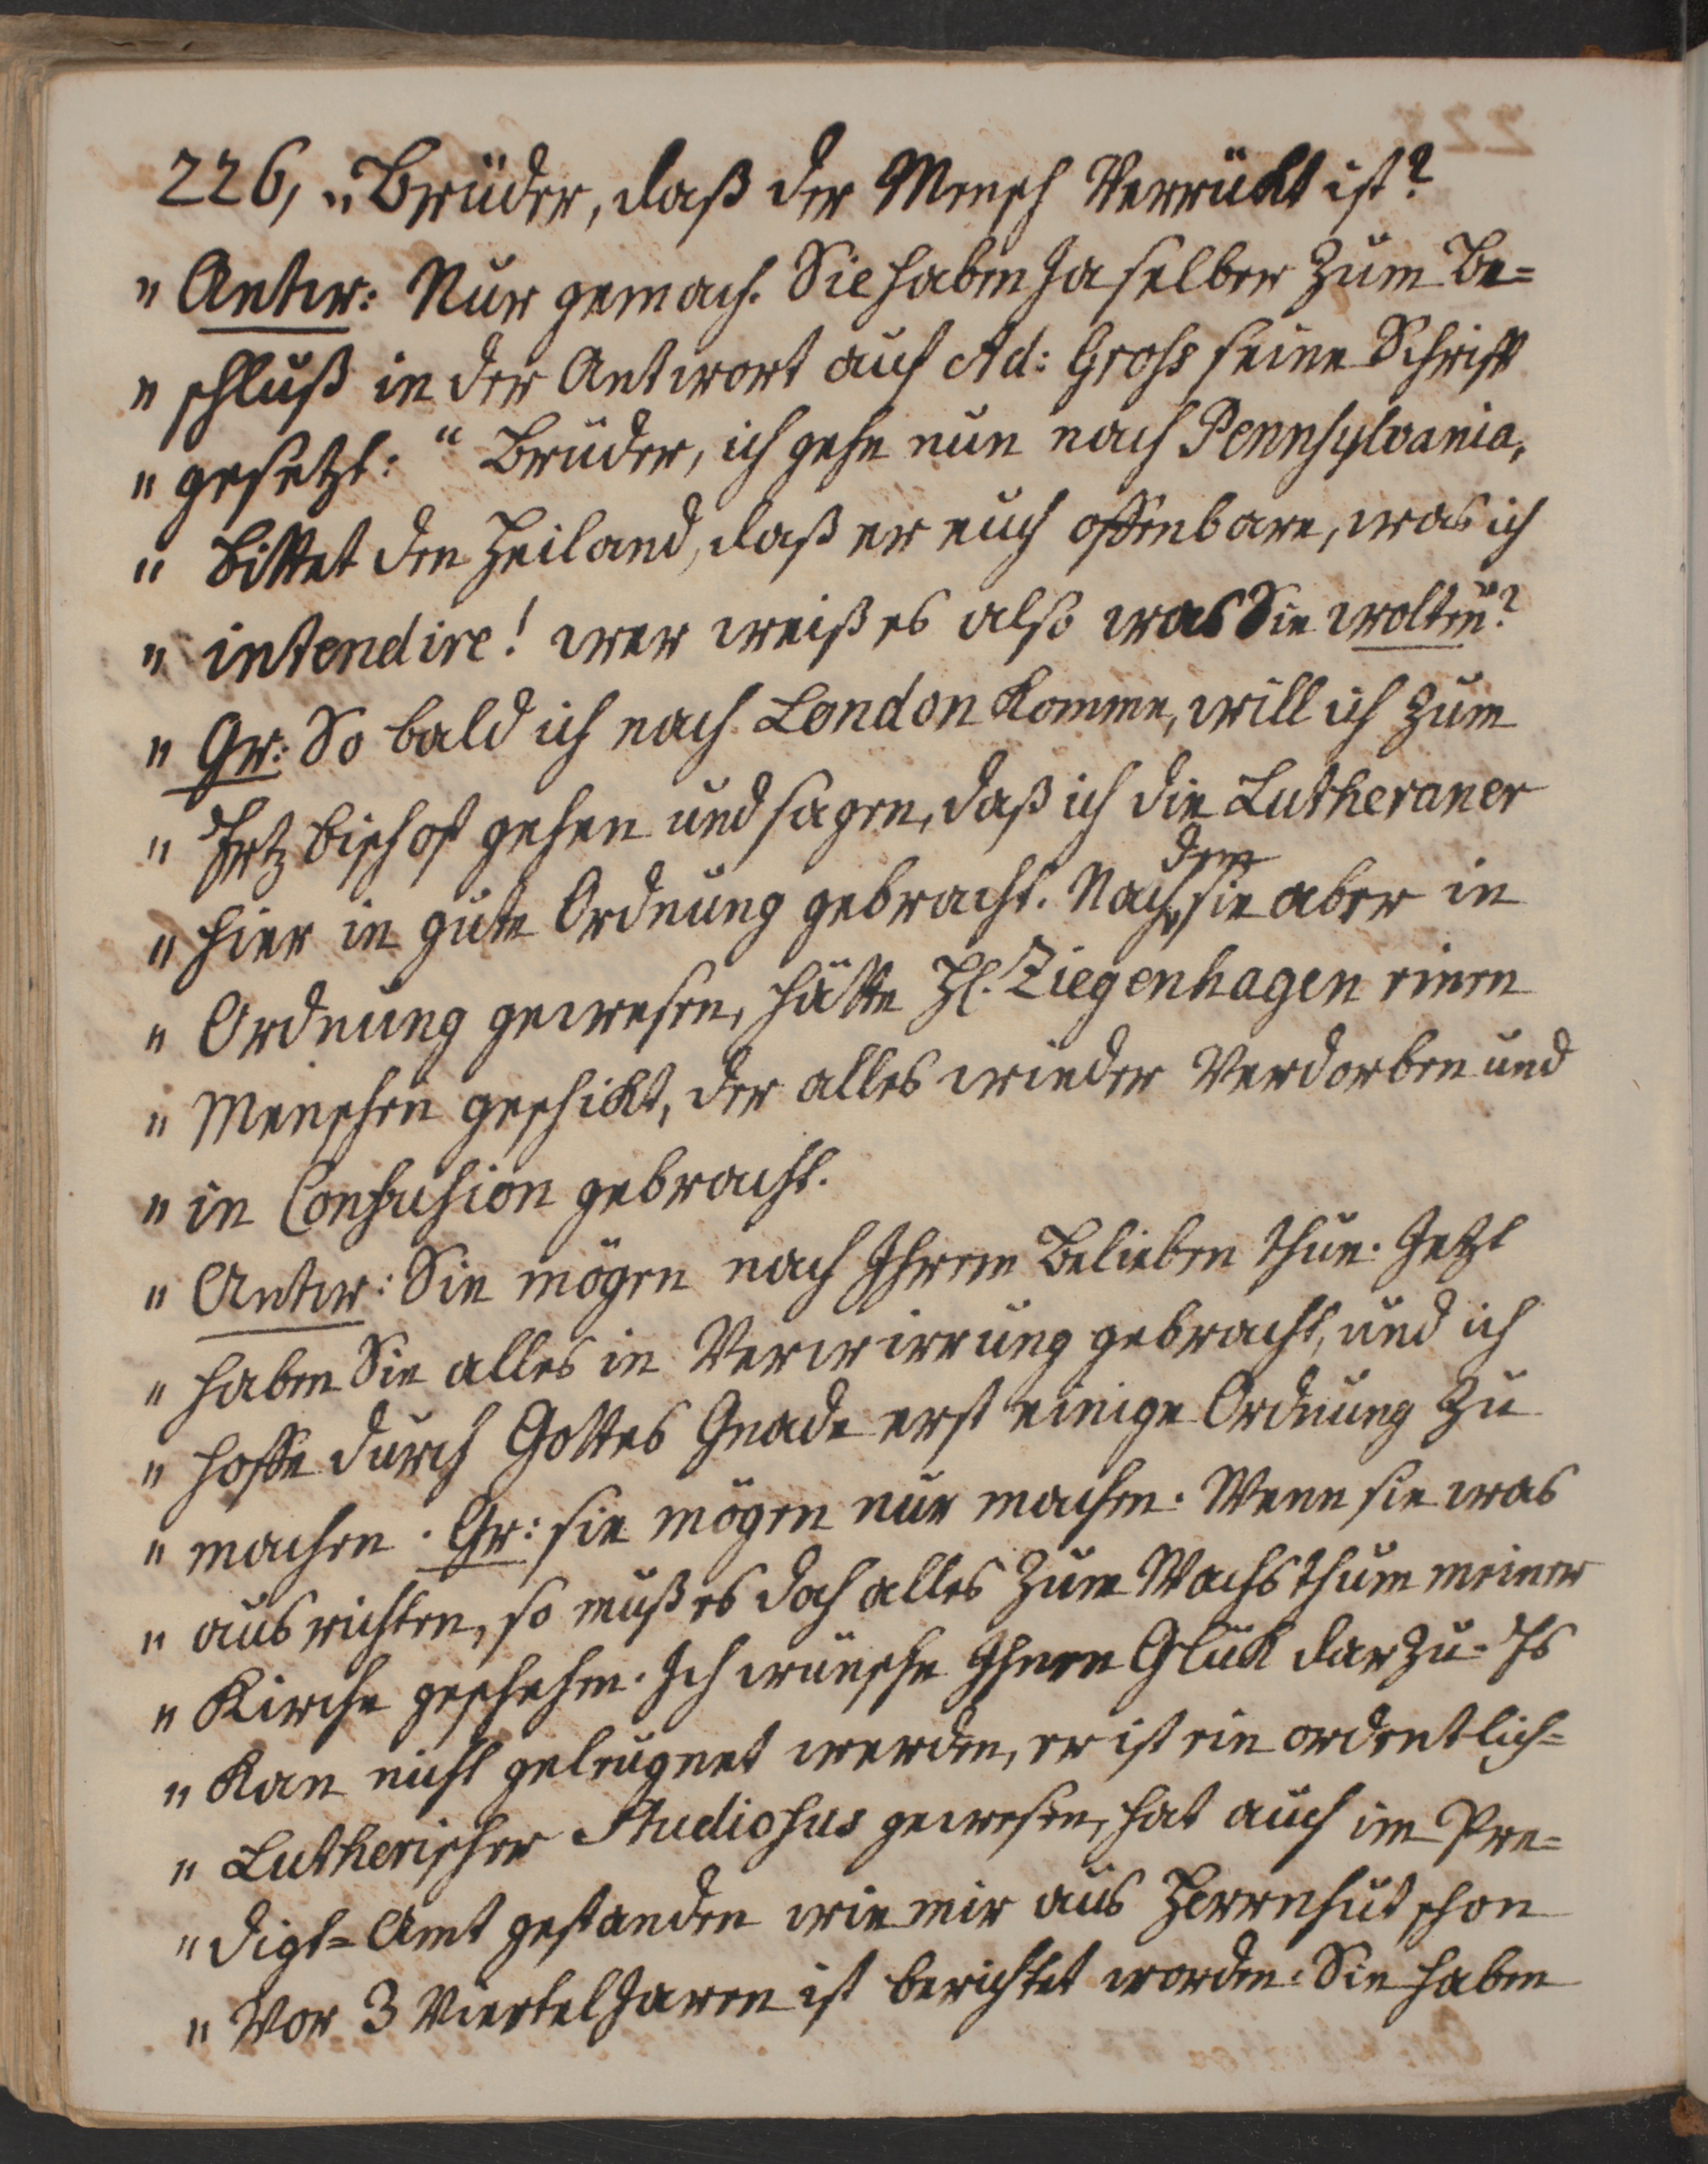 226, „ Brüder, daß der Mensch Verrükt ist?
„ Antw: Nur gemach. Sie haben Ja selber zum Be=
„ schluß in der Antwort auf Ad: Gross seine Schrift
„ gesetzt: “ Brüder, ich gehe nun nach Pennsylvania,
„ bittet den Heiland, daß er euch offenbare, was ich
„ intendire! wer weiß es also was Sie wolten?
„ Gr: So bald ich nach London komme, will ich zum
„ Ertz bischof gehen und sagen, daß ich die Lutheraner
„ hier in gute Ordnung gebracht. Nachdem sie aber in
„ Ordnung gewesen, hätte H. Ziegenhagen einen
„ Menschen geschikt, der alles wieder Verdorben und
„ in Confusion gebracht.
„ Antw: Sie mögen nach Ihrem Belieben thun. Jetzt
„ haben Sie alles in Verwirrung gebracht, und ich
„ hoffe durch Gottes Gnade erst einige Ordnung zu
„ machen. Gr: sie mögen nur machen. Wenn sie was
„ aus richten, so muß es doch alles zum Wachsthum meiner
„ Kirche geschehen. Ich wünsche Ihnen Glük darzu. Es
„ kan nicht geleugnet werden, er ist ein ordentlich=
„ Lutherischer Studiosus gewesen, hat auch im Pre=
„ digt=Amt gestanden wie mir aus Herrnhut schon
„ Vor 3 Viertel Jaren ist berichtet worden. Sie haben